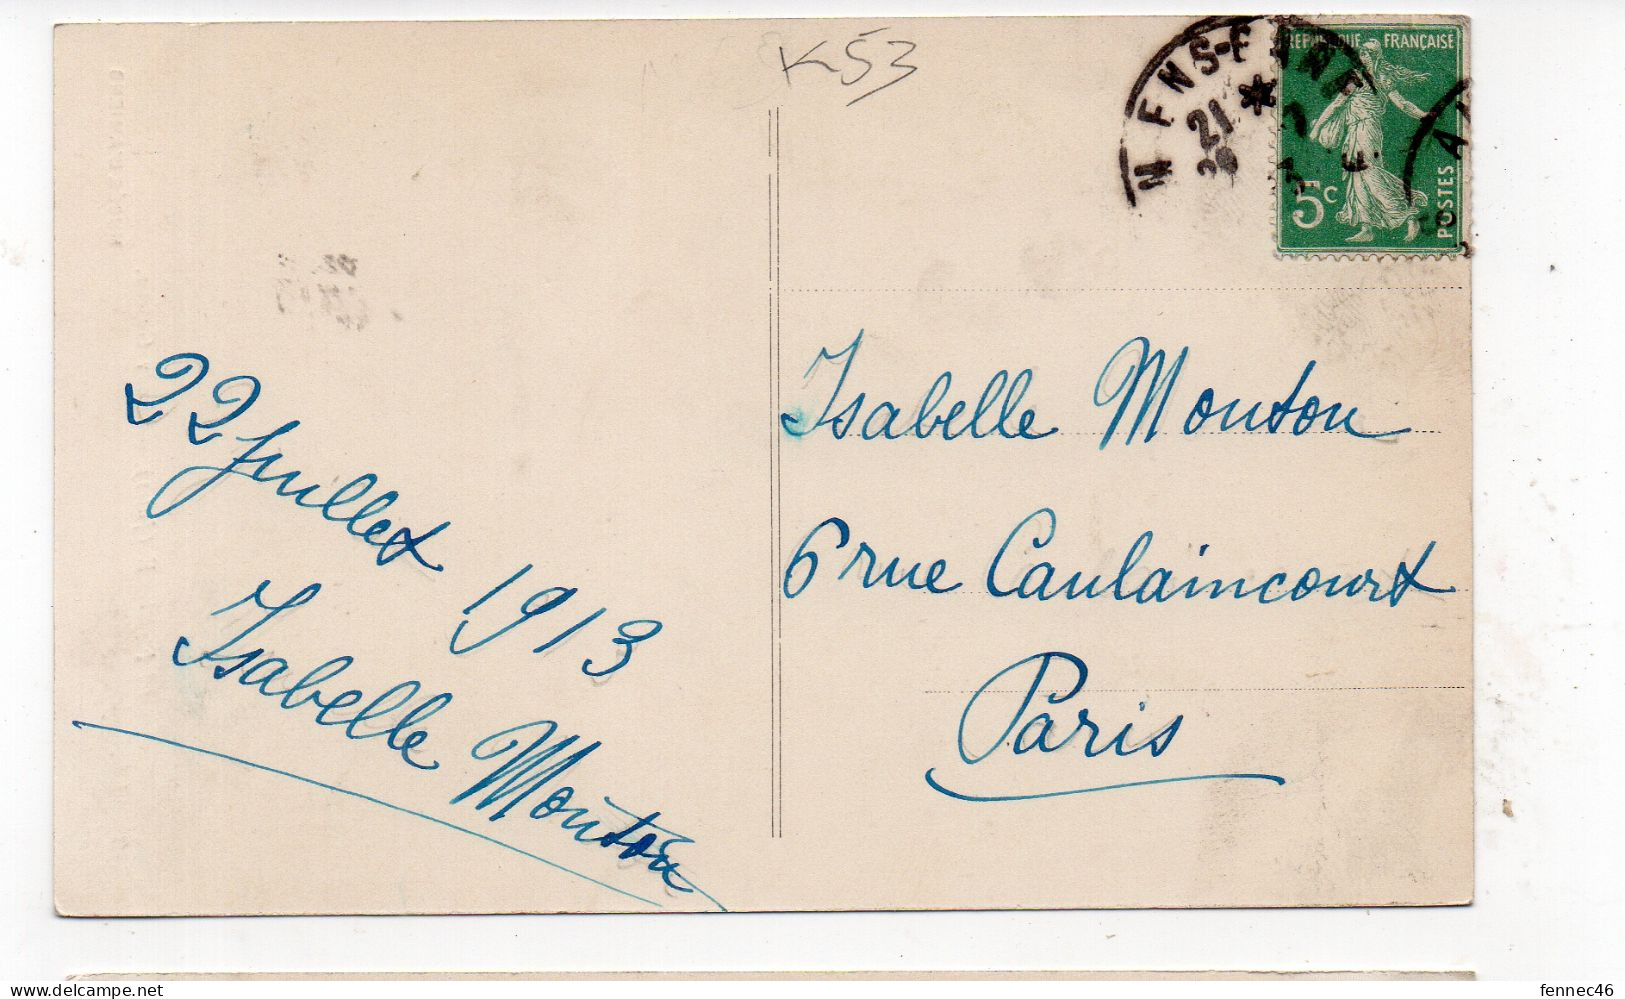 K53
RÉPUBLIQUE FRANÇAISE
21 *
5c
POSTES
22 Juillet 1913
Isabelle Mouton
Isabelle Mouton
6 rue Caulaincourt
Paris
fennec46